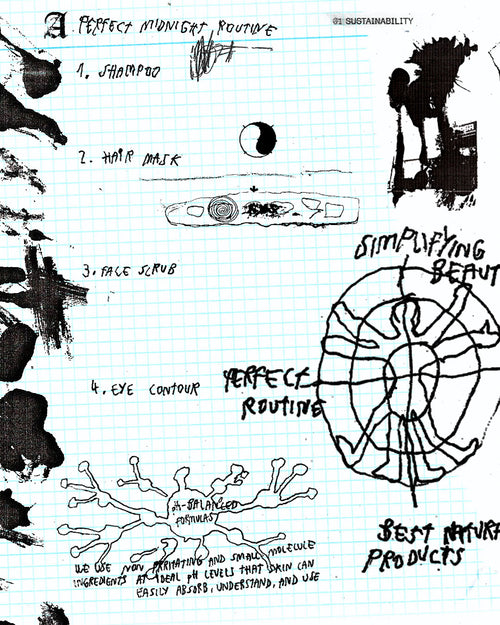 A. PERFECT MIDNIGHT ROUTINE
@1 SUSTAINABILITY
1. SHAMPOO
2. HAIR MASK
3. FACE SCRUB
4. EYE CONTOUR
SIMPLIFYING
BEAUT
PERFECT
ROUTINE
BEST NATUR
PRODUCTS
pH-BALANCED
FORMULAS
WE USE NON IRRITATING AND SMALL MOLECULE
INGREDIENTS AT IDEAL pH LEVELS THAT SKIN CAN
EASILY ABSORB, UNDERSTAND, AND USE